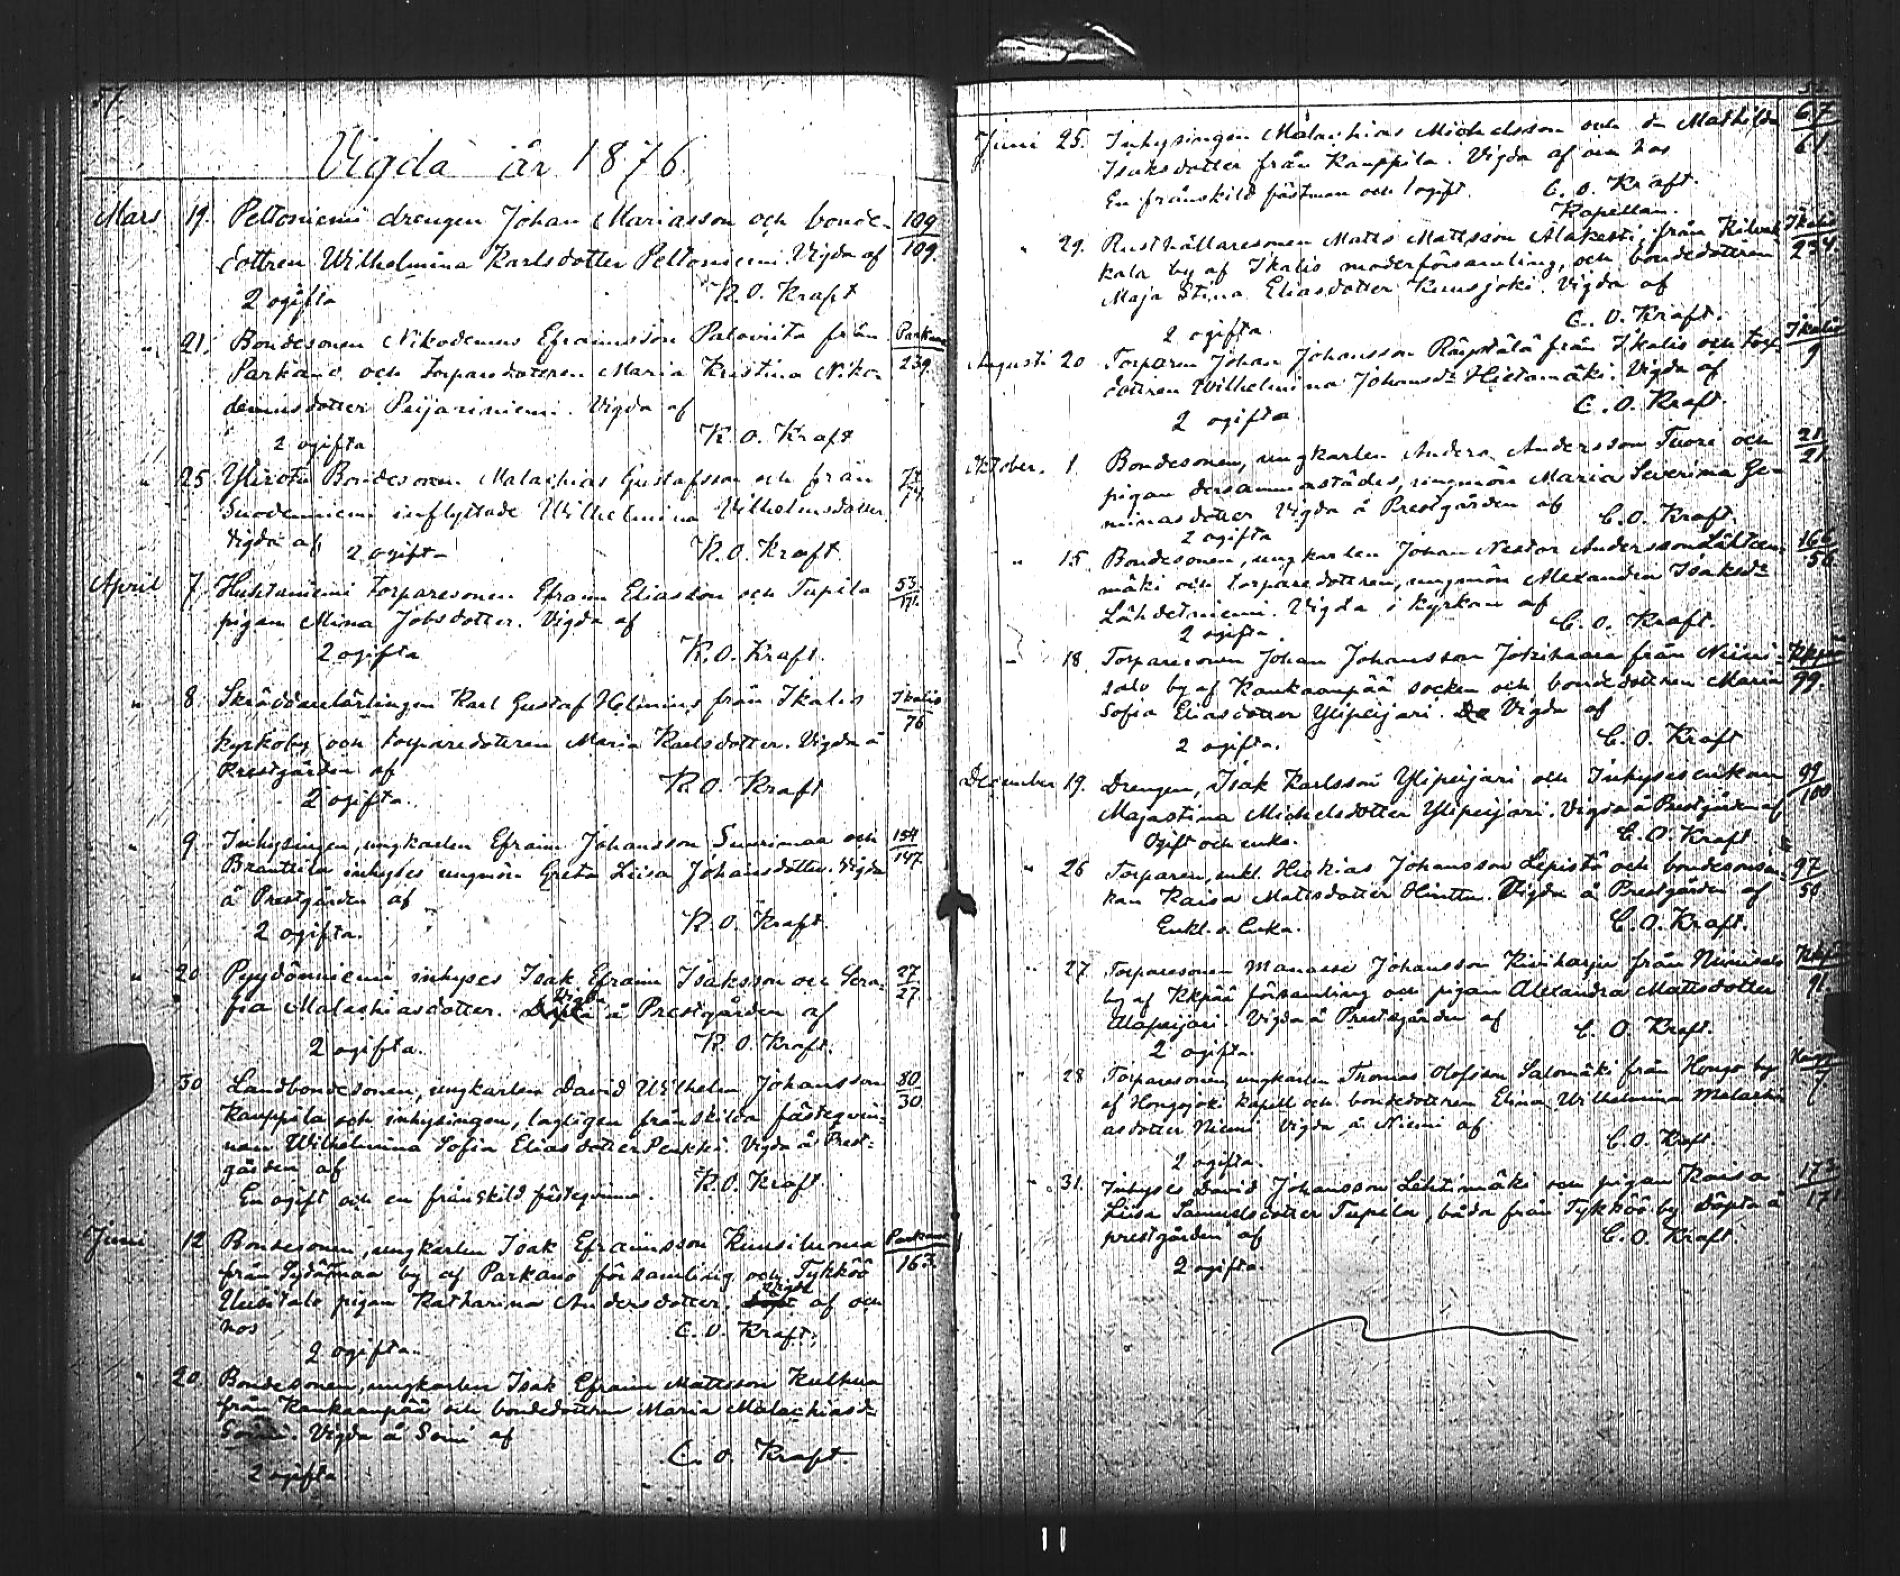 51.
Vigda år 1876.
Mars 19. Peltoniemi drengen Johan Mariasson och bonde- 109
dottren Wilhelmina Karlsdotter Peltoniemi. Vigda af 109.
2 ogifta K. O. Kraft
" 21. Bondesonen Nikodemus Efraimsson Paloviita från Parkano
Parkano och Torparedottren Maria Kristina Niko- 239
demusdotter Peijariniemi. Vigda af
2 ogifta K. O. Kraft
" 25 Bondesonen Malachias Gustafsson och från
Suodenniemi inflyttade Wilhelmina Wilhelmsdotter 74
Vigda af 2 ogifta K. O. Kraft
April 7. Huhtaniemi torparesonen Efraim Eliasson och Tupila 53
pigan Mina Jobsdotter. Vigda af 171.
2 ogifta K. O. Kraft.
" 8. Skräddarelärlingen Karl Gustaf Helenius från Ikalis Ikalis
kyrkoby och torparedottren Maria Karlsdotter. Vigda å 76
Prestgården af
2 ogifta. K. O. Kraft
" 9. Inhysingen, ungkarlen Efraim Johansson Suurimaa och 154
Branttila inhyses ungmön Greta Liisa Johansdotter. Vigda 147
å Prestgården af
2 ogifta. K. O. Kraft.
" 20. inhyses Isak Efraim Isaksson och Sera- 27
fia Malachiasdotter. Vigda å Prestgården af 27
2 ogifta. K. O. Kraft.
30 Landbondesonen, ungkarlen David Wilhelm Johansson 80
Kauppila och inhysingen, lagligen frånskilda fästeqvin- 30
nan Wilhelmina Sofia Eliasdotter Penkki. Vigda å Prest-
gården af
En ogift och en frånskild fästeqvinna. K. O. Kraft
Juni 12 Bondesonen, ungkarlen Isak Efraimsson Kuusiluoma Parkano
från by af Parkano församling och Tykköö 163.
Uusitalo pigan Katharina Andersdotter. Vigda af och
hos C. O. Kraft.
2 ogifta.
" 20 Bondesonen, ungkarlen Isak Efraim Mattsson Kulhua
från Kankaanpää och bondedottren Maria Malachiasd:r
Somi. Vigda å Somi af
2 ogifta. C. O. Kraft.
52.
Juni 25. Inhysingen Malachias Michelsson och Mathilda 67
Isaksdotter från Kauppila. Vigda af och hos 61
En frånskild fästman och 1 ogift C. O. Kraft.
Kapellan.
" 29. Rusthållaresonen Matts Mattsson Alakesti från Kilvak- Ikalis
kala by af Ikalis moderförsamling, och bondedottren 234.
Maja Stina Eliasdotter Kuusjoki. Vigda af
2 ogifta. C. O. Kraft.
Augusti 20 Torparen Johan Johansson från Ikalis och torp- Ikalis
dottren Wilhelmina Johansd:r Hietamäki. Vigda af 9
2 ogifta. C. O. Kraft.
Oktober. 1. Bondesonen, ungkarlen Anders Andersson Tuori och 21
pigan dersammastädes, ungmön Maria Severina Ge- 21.
minasdotter Vigda å Prestgården af
2 ogifta C. O. Kraft.
" 15. Bondesonen, ungkarlen Johan Nestor Andersson Lähteen- 166
mäki och torparedottren, ungmön Alexandra Isaksd:r 56.
Lähdetniemi. Vigda i kyrkan af
2 ogifta. C. O. Kraft.
" 18. Torparesonen Johan Johansson Jokihaara från Niini-
salo by af Kankaanpää socken och bondedottren Maria 99.
Sofia Eliasdotter Ylipeijari. Vigda af
2 ogifta. C. O. Kraft
December 19. Drengen, Isak Karlsson Ylipeijari och Inhysesenkan 99
Majastina Michelsdotter Ylipeijari. Vigda å Prestgården af 100
Ogift och enka. C. O. Kraft.
" 26 Torparen, enkl. Hiskias Johansson Lepistö och bondesonsen- 97
kan Kaisa Mattsdotter Hinttu. Vigda å Prestgården af 50.
Enkl. o. Enka. C. O. Kraft.
" 27. Torparesonen Manasse Johansson Kiviharju från Niinisalo
by af Kkpää församling och pigan Alexandra Mattsdotter 91.
Alapeijari. Vigda å Prestgården af
2 ogifta. C. O. Kraft.
" 28 Torparesonen, ungkarlen Thomas Olofsson Salomäki från Hongo by
af Hongojoki kapell och bondedottren Elina Wilhelmina Malachi- 7
asdotter Niemi Vigda å Niemi af
2 ogifta. C. O. Kraft.
" 31. Inhyses David Johansson Lehtimäki och pigan Kaisa 173
Liisa Samuelsdotter Tupila, båda från Tykköö by döpta å 171
prestgården af C. O. Kraft.
2 ogifta.
11